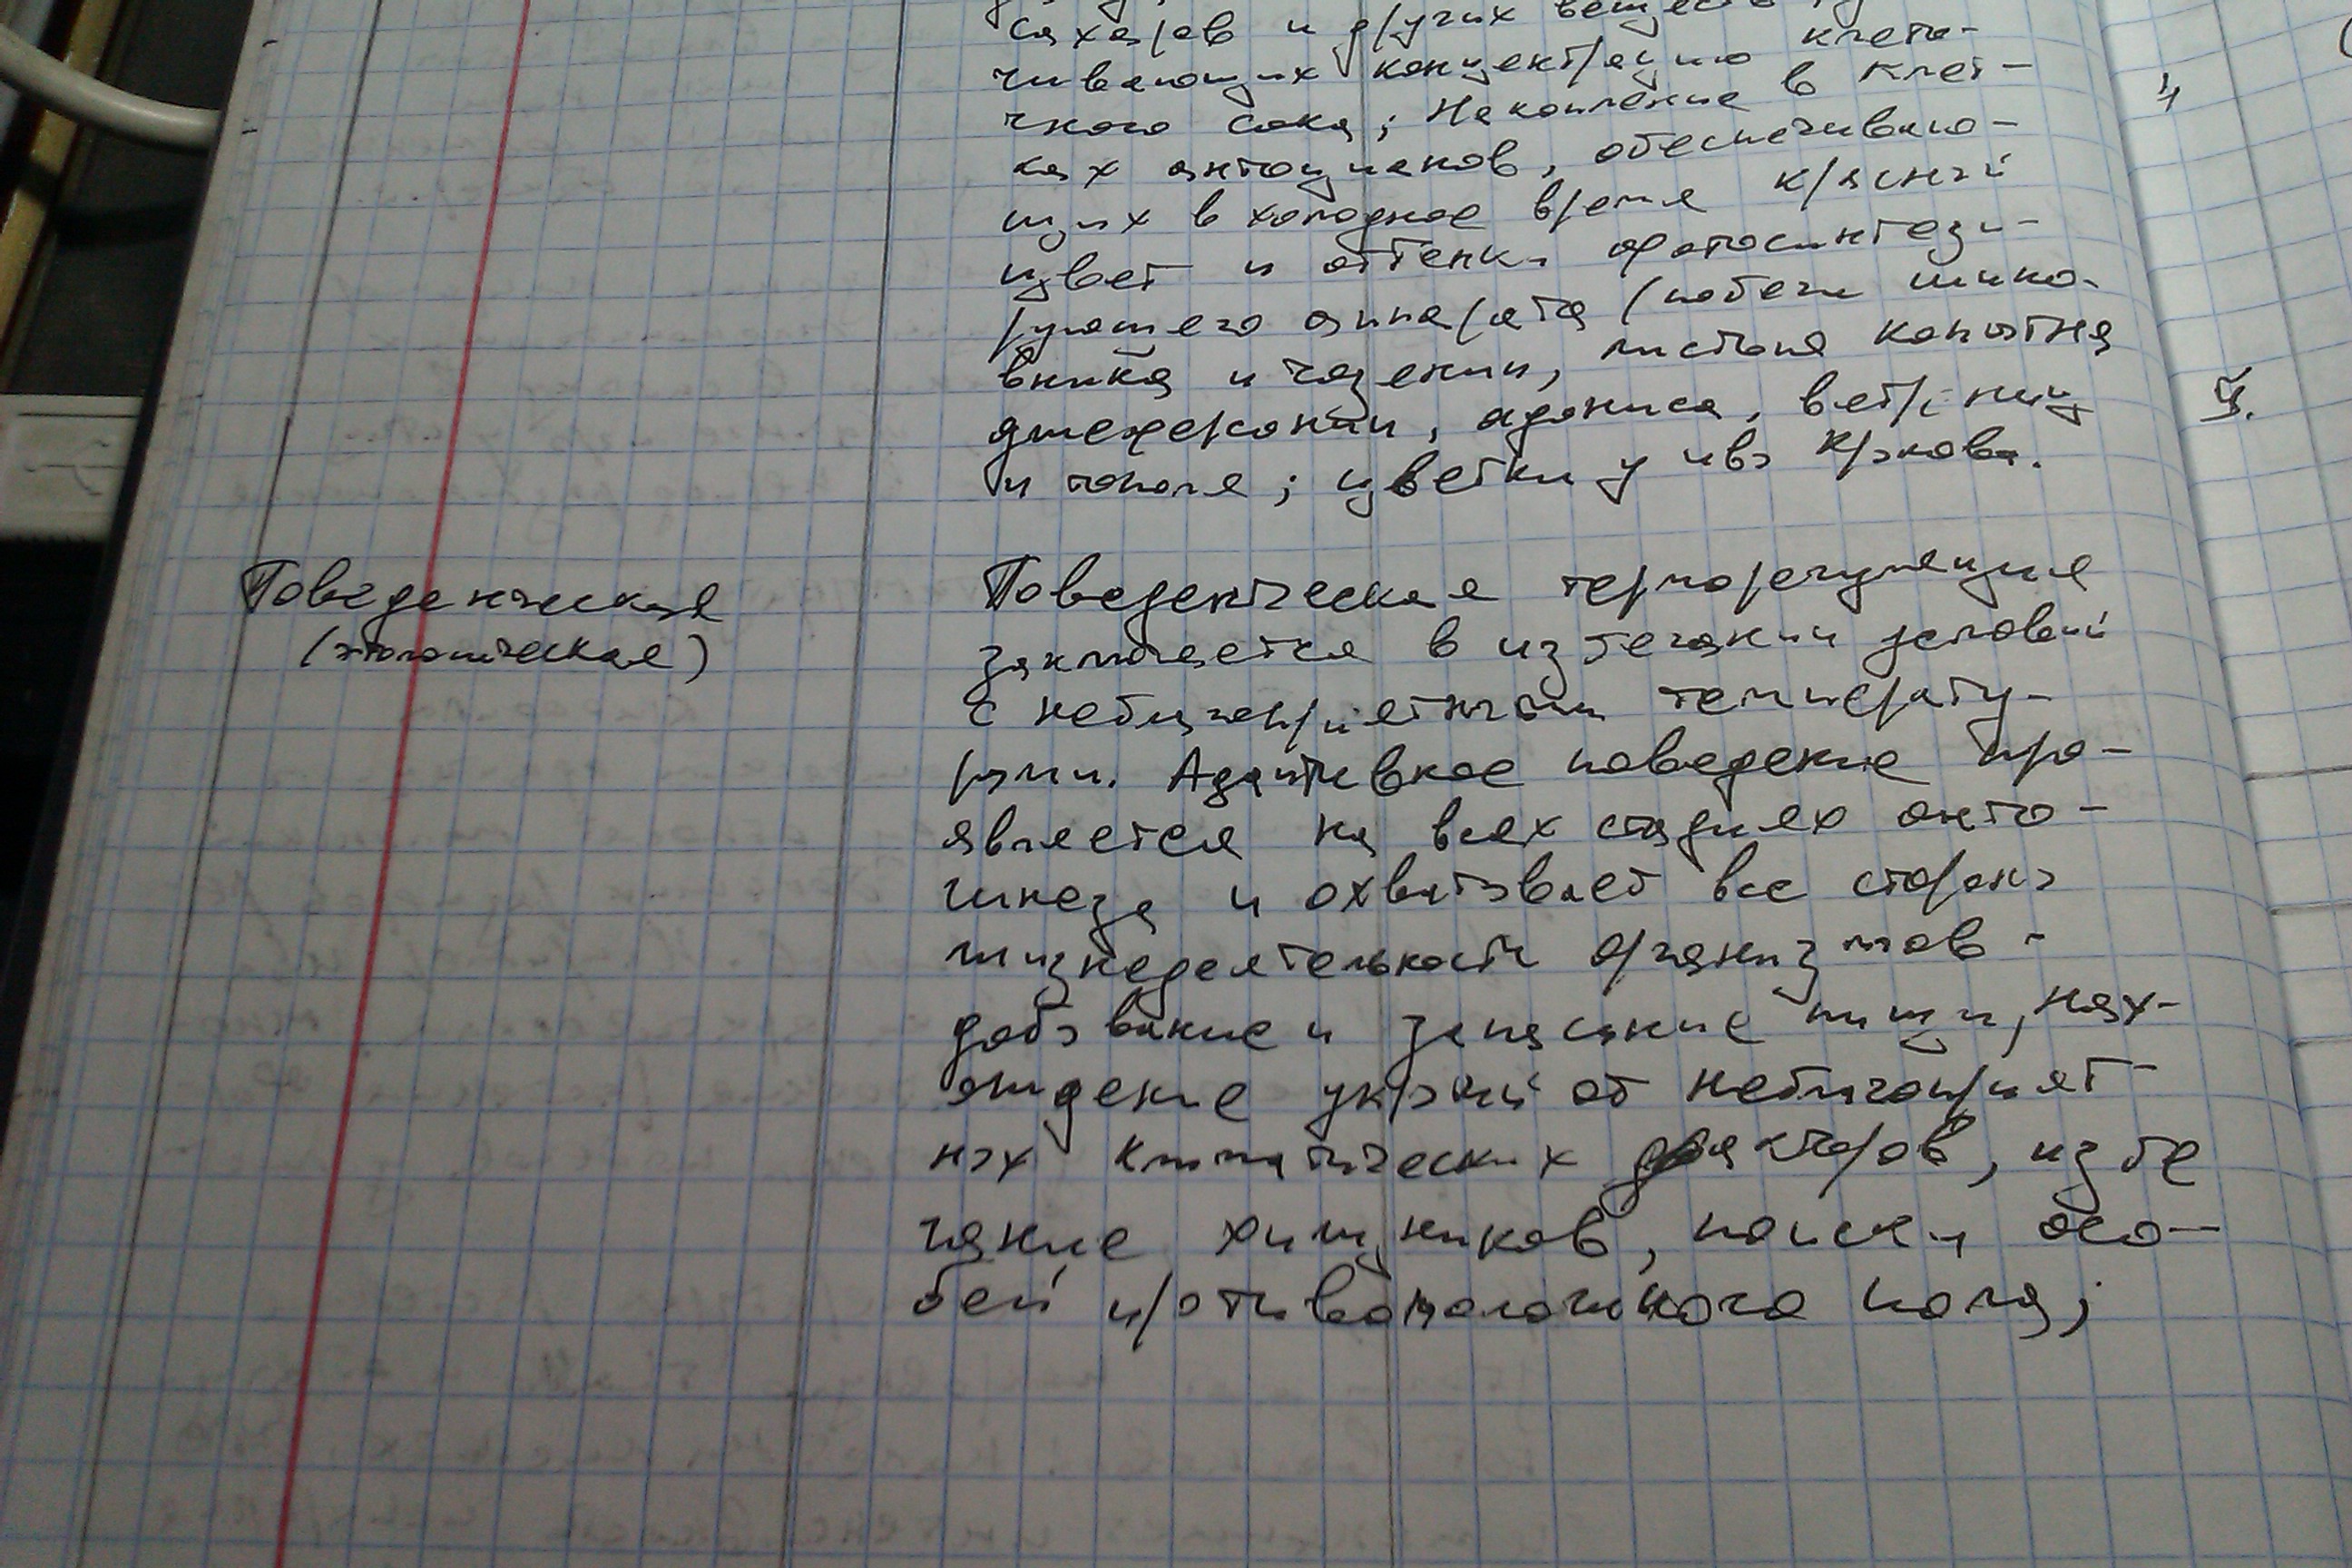 сахаров и других веществ,
чивающих концентрацию клето-
чного сока; Накопление в клет-
ках антоцианов, обеспечиваю-
щих в холодное время красный
цвет и оттенки фотосинтези-
рующего аппарата (побеги шипо-
вника и гардении, листья копытня
джефферсонии, адониса, ветрениц
и тополя; цветки у ивы Крылова.
Поведенческая
(этологическая)
Поведенческая терморегуляция
заключается в избегании условий
с неблагоприятными температу-
рами. Адаптивное поведение про-
является на всех стадиях онто-
генеза и охватывает все стороны
жизнедеятельности организмов -
добывание и запасание пищи, нах-
ождение укрытий от неблагоприят-
ных климатических факторов, избе
гание хищников, поиски осо-
бей противоположного пола;